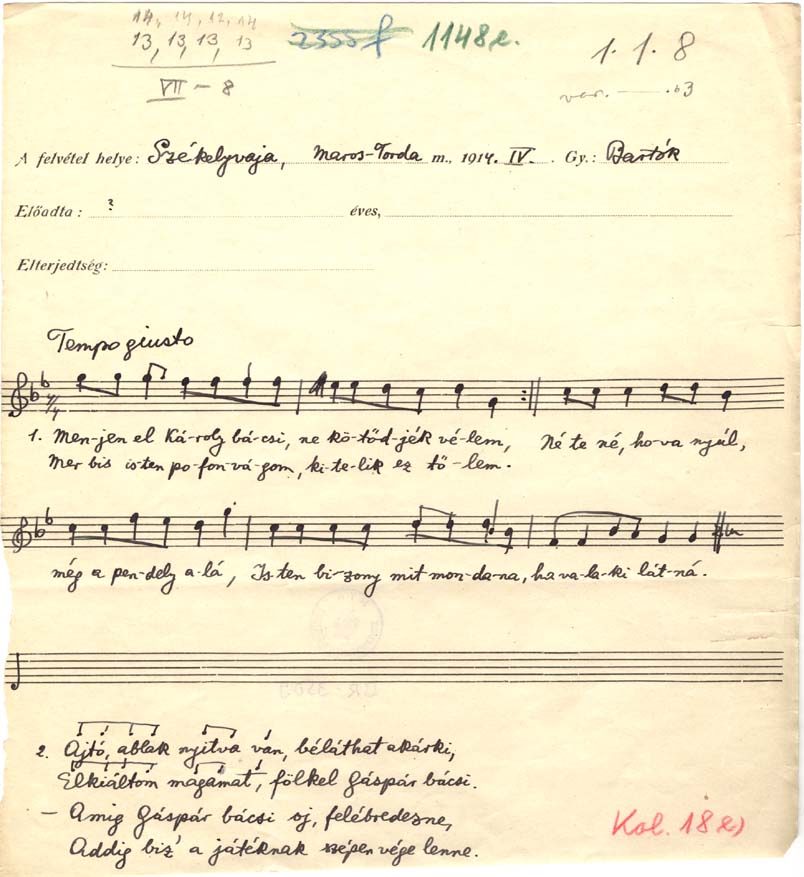 14, 14, 12, 14
13, 13, 13, 13
VII - 8
2355 f
1148e.
1. 1. 8
var. b3
A felvétel helye: Székelyvaja, Maros-Torda m., 1914. IV. Gy.: Bartók
Előadta: ? éves,
Elterjedtség:
Tempo giusto
1. Men-jen el Ká-roly bá-csi, ne kö-tőd-jék vé-lem, Né te né, ho-va nyúl,
Mer bis is-ten po-fon-vá-gom, ki-te-lik ez tő-lem.
még a pen-dely a-lá, Is-ten bi-zony mit mon-da-na, ha va-la-ki lát-ná.
2. Ajtó, ablak nyitva van, béláthat akárki,
Elkiáltom magamat, fölkel Gáspár bácsi.
- Amig Gáspár bácsi oj, felébredezne,
Addig biz' a játéknak szépen vége lenne.
Kol. 18 e)